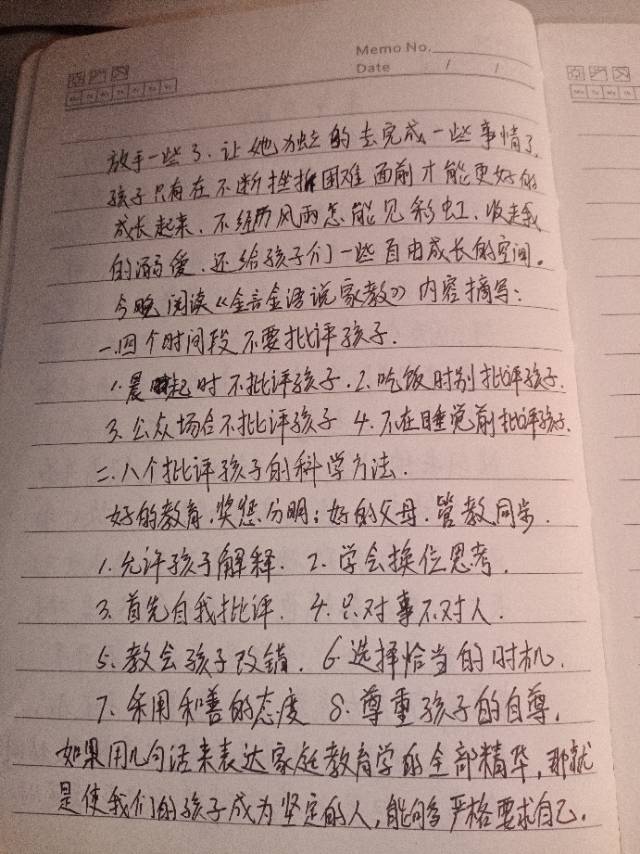 Memo No.
Date / /
放手一些了.让她独立的去完成一些事情了,
孩子只有在不断挫折困难面前才能更好的
成长起来.不经历风雨怎能见彩虹,收起我
的溺爱.还给孩子们一些自由成长的空间。
今晚阅读《金言金语说家教》内容摘写:
一.四个时间段不要批评孩子.
1.晨起时不批评孩子.2.吃饭时别批评孩子.
3.公众场合不批评孩子 4.不在睡觉前批评孩子.
二.八个批评孩子的科学方法.
好的教育.奖惩分明;好的父母.管教同步.
1.允许孩子解释. 2.学会换位思考.
3.首先自我批评. 4.只对事不对人.
5.教会孩子改错. 6.选择恰当的时机.
7.采用和善的态度 8.尊重孩子的自尊.
如果用几句话来表达家庭教育学的全部精华,那就
是使我们的孩子成为坚定的人,能够严格要求自己.